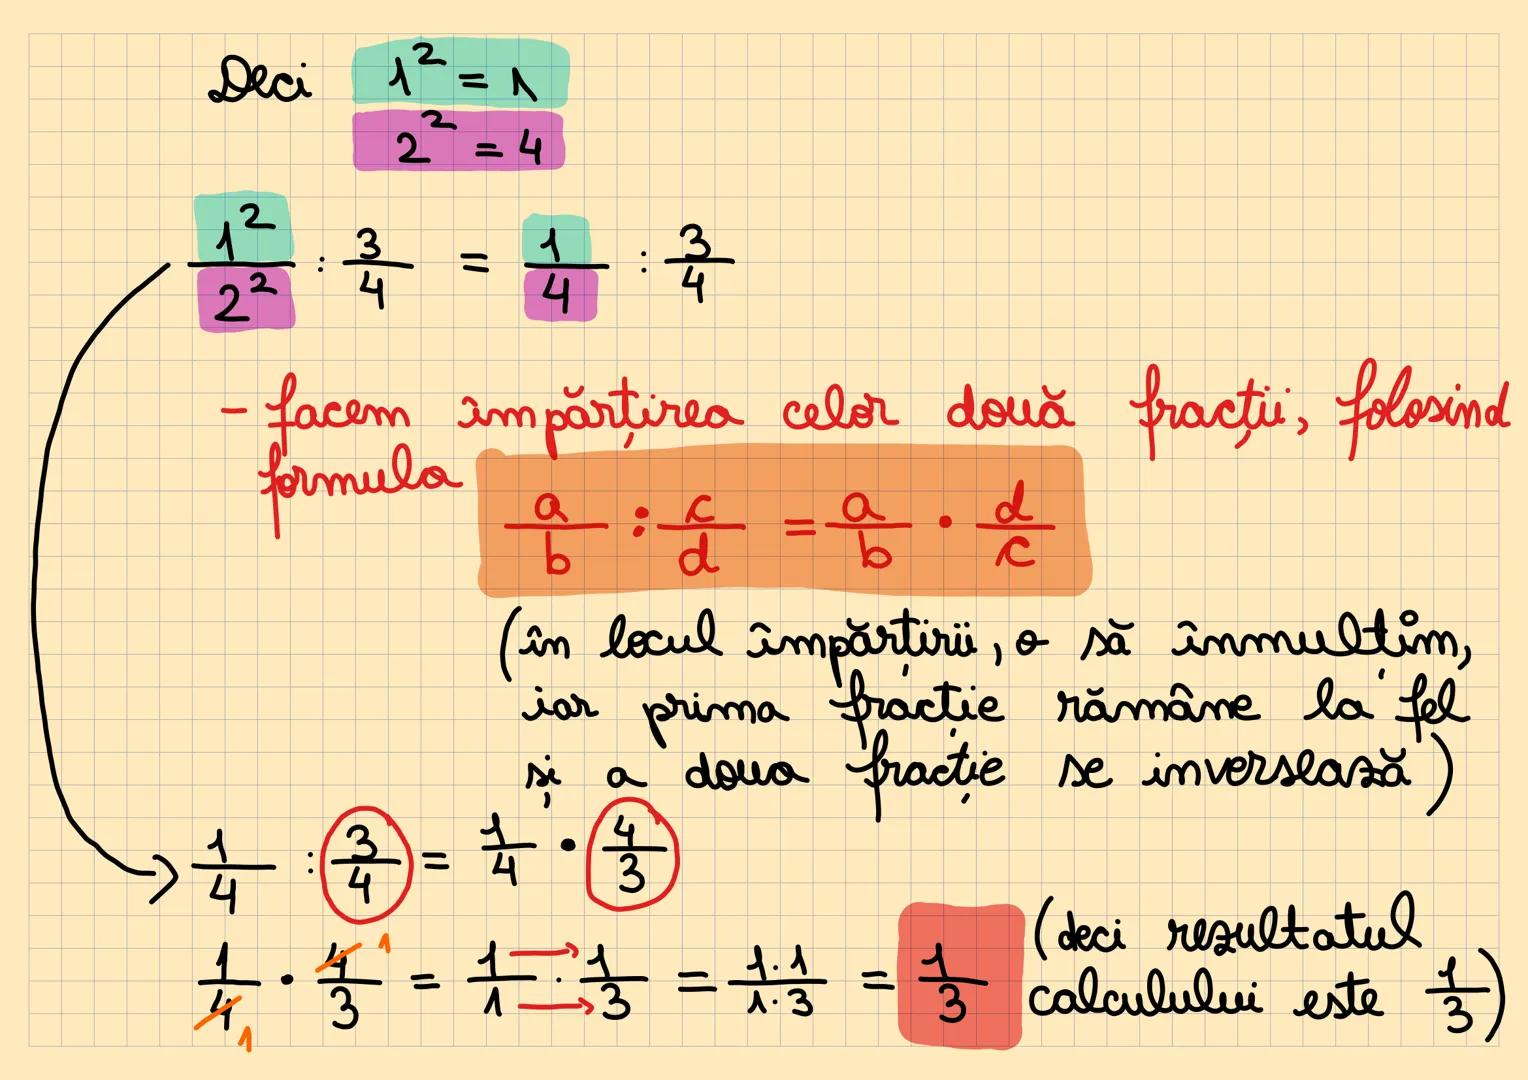 Deci 1² = 1
2² = 4
1²/2² : 3/4 = 1/4 : 3/4
- facem împărțirea celor două fracții, folosind
formula
a/b : c/d = a/b · d/c
(în locul împărțirii, o să înmulțim,
iar prima fracție rămâne la fel
și a doua fracție se inversează)
1/4 : 3/4 = 1/4 · 4/3
1/4 · 4/3 = 1/1 · 1/3 = 1·1/1·3 = 1/3 (deci rezultatul
1 1 calculului este 1/3)